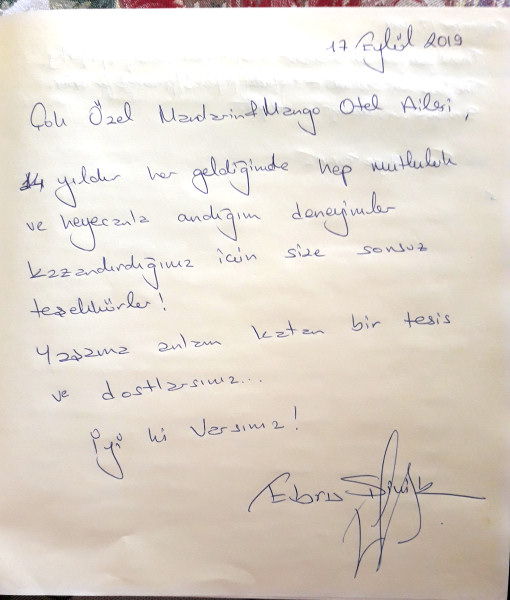 17 Eylül 2019
Çok Özel Mandarin&Mango Otel Ailesi,
14 yıldır her geldiğimde hep mutluluk
ve heyecanla andığım deneyimler
kazandırdığınız için size sonsuz
teşekkürler!
Yaşama anlam katan bir tesis
ve dostlarsınız...
İyi ki Varsınız!
Ebru